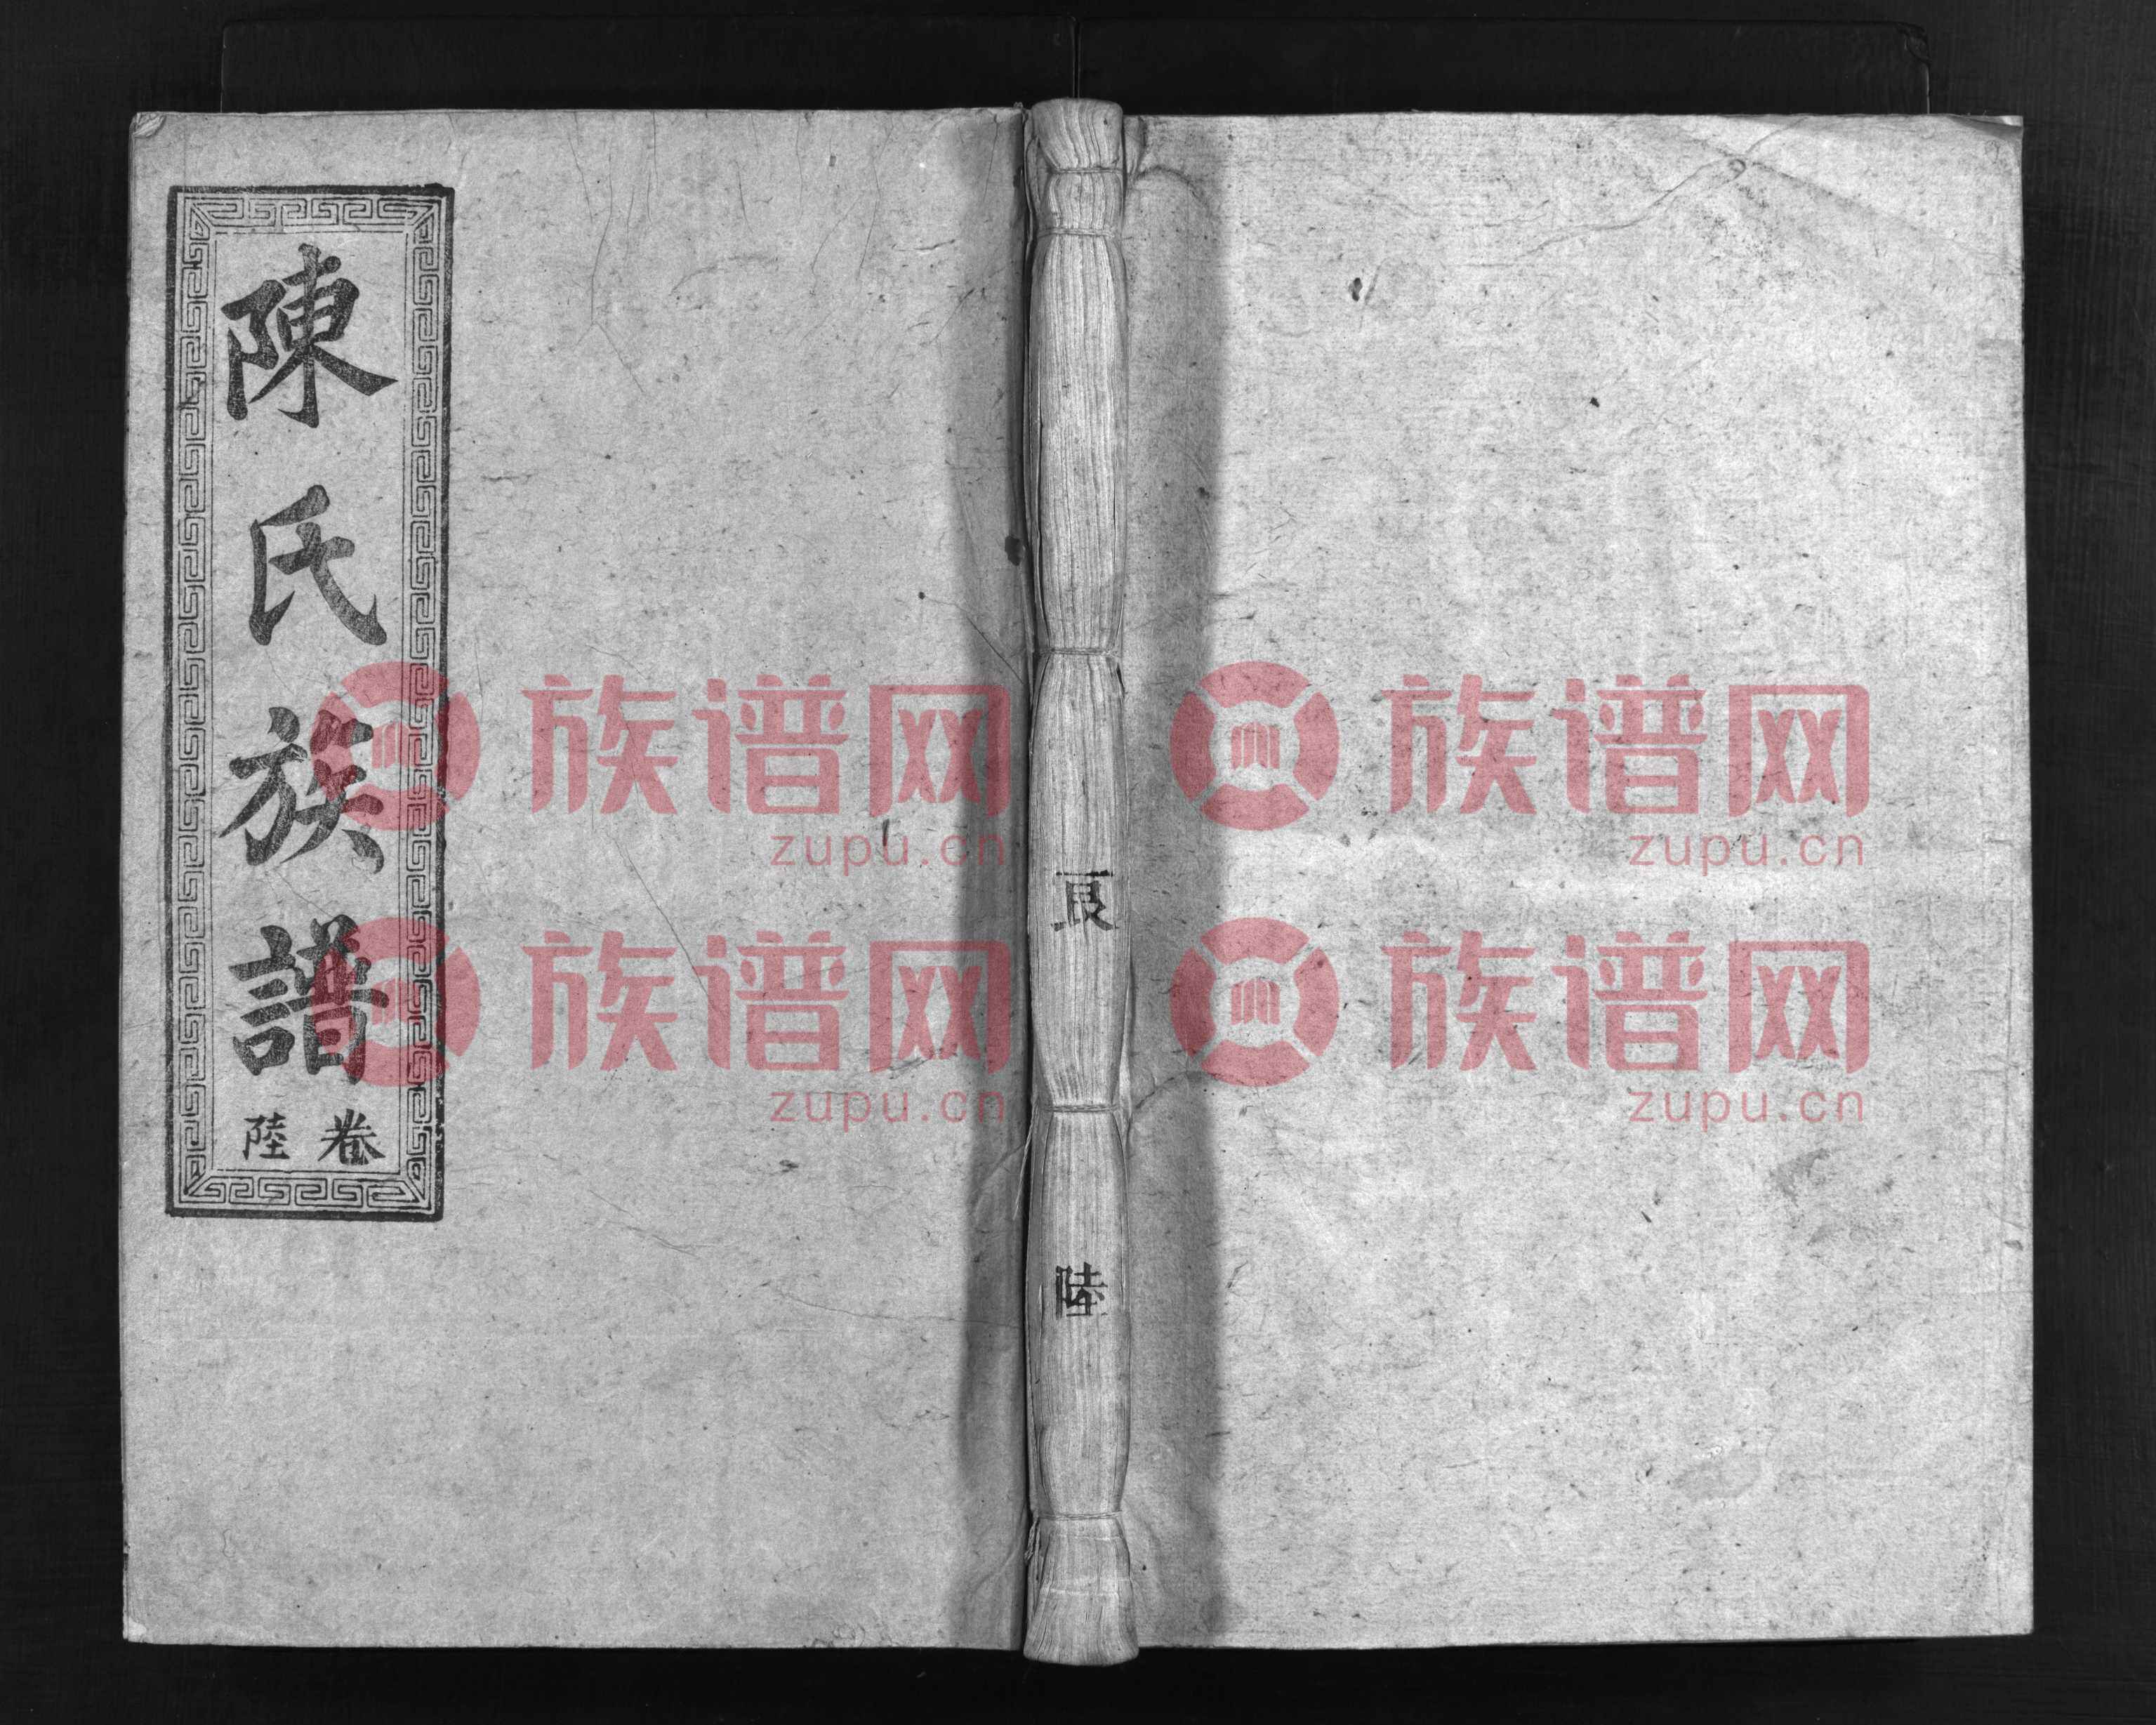 陳氏族譜
卷陸
陸
族谱网
zupu.cn
族谱网
zupu.cn
族谱网
zupu.cn
族谱网
zupu.cn